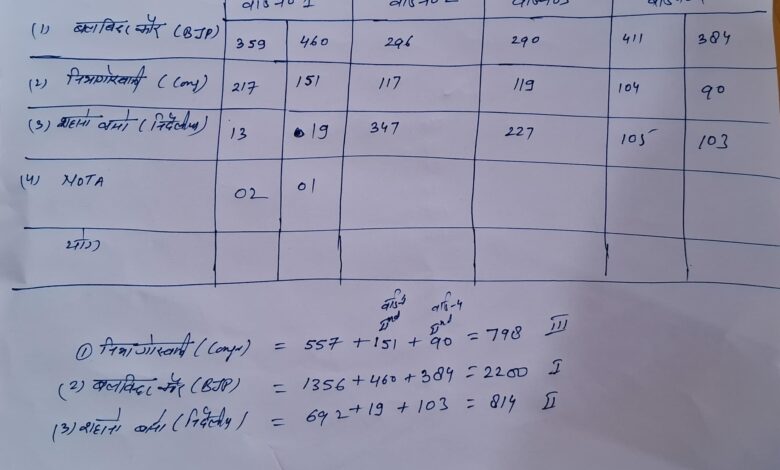 वार्ड नं० 1 वार्ड नं०
(1) बलविंदर कौर (BJP) 359 460 296 290 411 384
(2) (Cong) 217 151 117 119 104 90
(3) वर्मा (निर्दलीय) 13 19 347 227 105 103
(4) NOTA 02 01
योग
वार्ड-1 वार्ड-4
IInd IInd
① (Cong) = 557 + 151 + 90 = 798 III
(2) बलविंदर कौर (BJP) = 1356 + 460 + 384 = 2200 I
(3) वर्मा (निर्दलीय) = 692 + 19 + 103 = 814 II